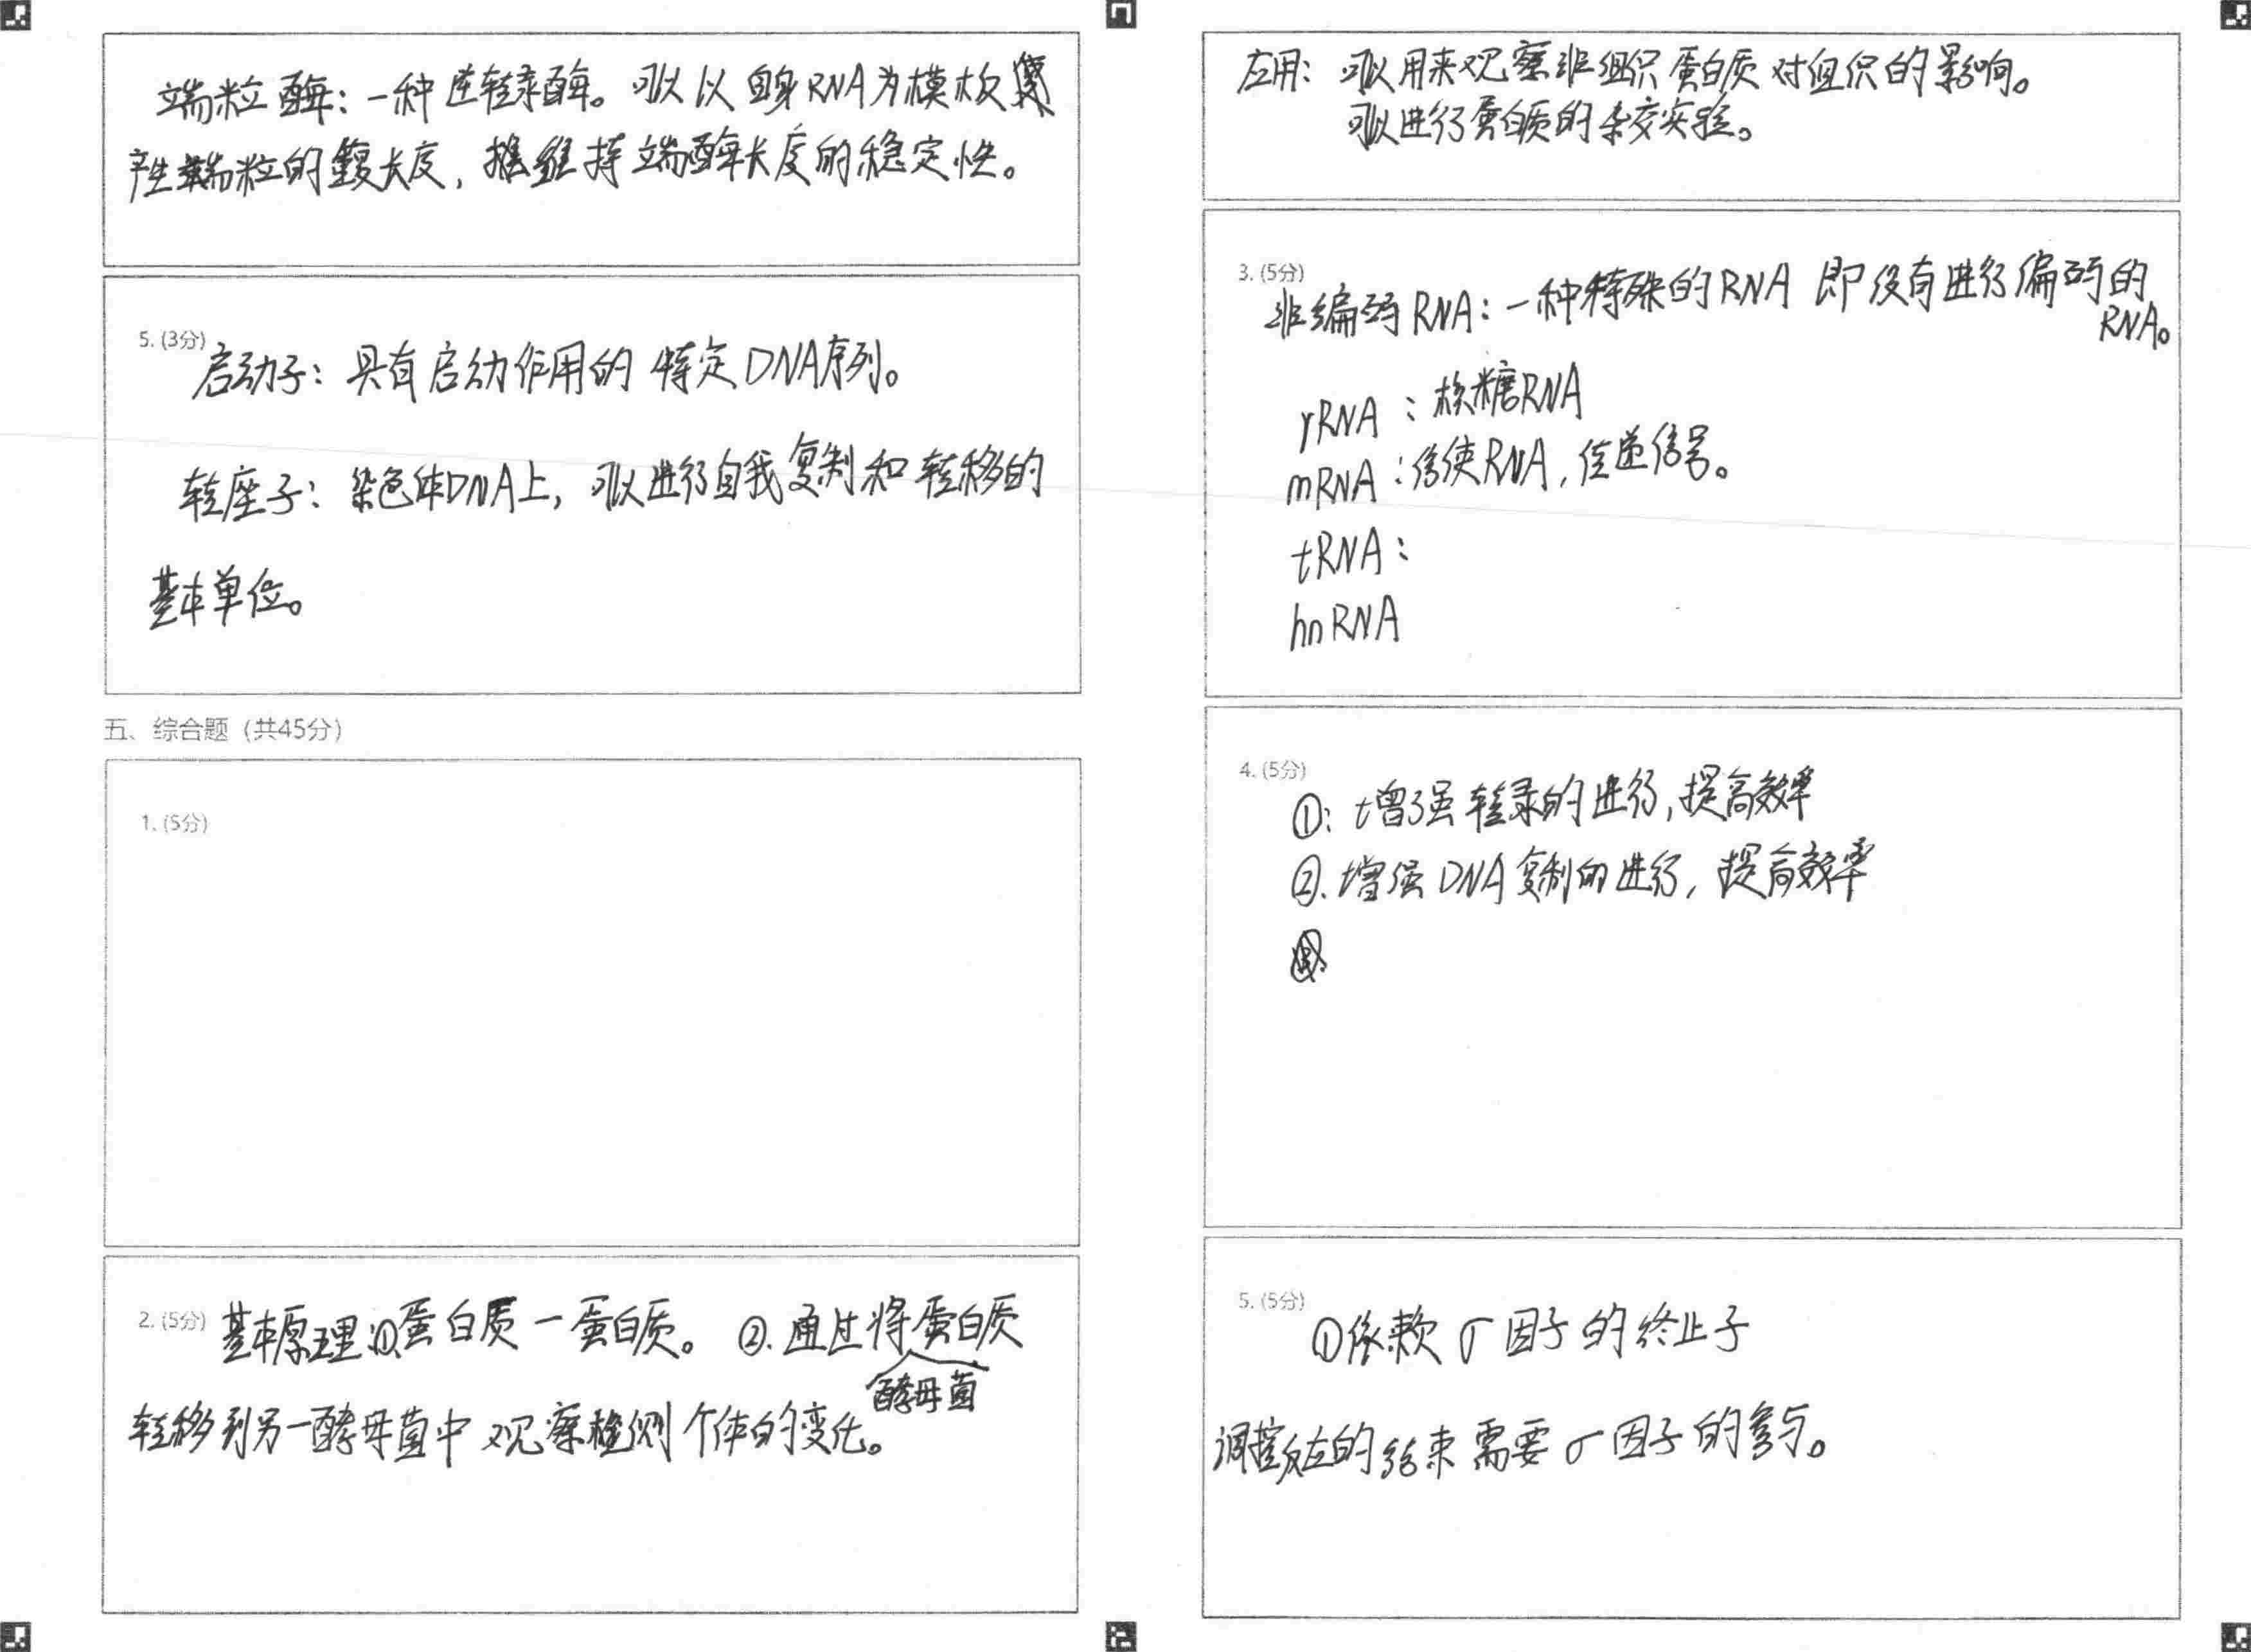 端粒酶：一种逆转录酶。可以以自身RNA为模板
产生端粒的重复长度，维持端酶长度的稳定性。
5. (3分)
启动子：具有启动作用的特定DNA序列。
转座子：染色体DNA上，可以进行自我复制和转移的
基本单位。
五、综合题（共45分）
1. (5分)
2. (5分) 基本原理：①蛋白质—蛋白质。②.通过将蛋白质
酵母菌
转移到另一酵母菌中观察检测个体的变化。
应用：可以用来观察非组织蛋白质对组织的影响。
可以进行蛋白质的杂交实验。
3. (5分)
非编码RNA：一种特殊的RNA 即没有进行编码的
RNA。
rRNA：核糖RNA
mRNA：信使RNA，传递信号。
tRNA：
hnRNA
4. (5分)
①：增强转录的进行，提高效率
②.增强DNA复制的进行，提高效率
5. (5分)
①依赖σ因子的终止子
调控反应的结束需要σ因子的参与。